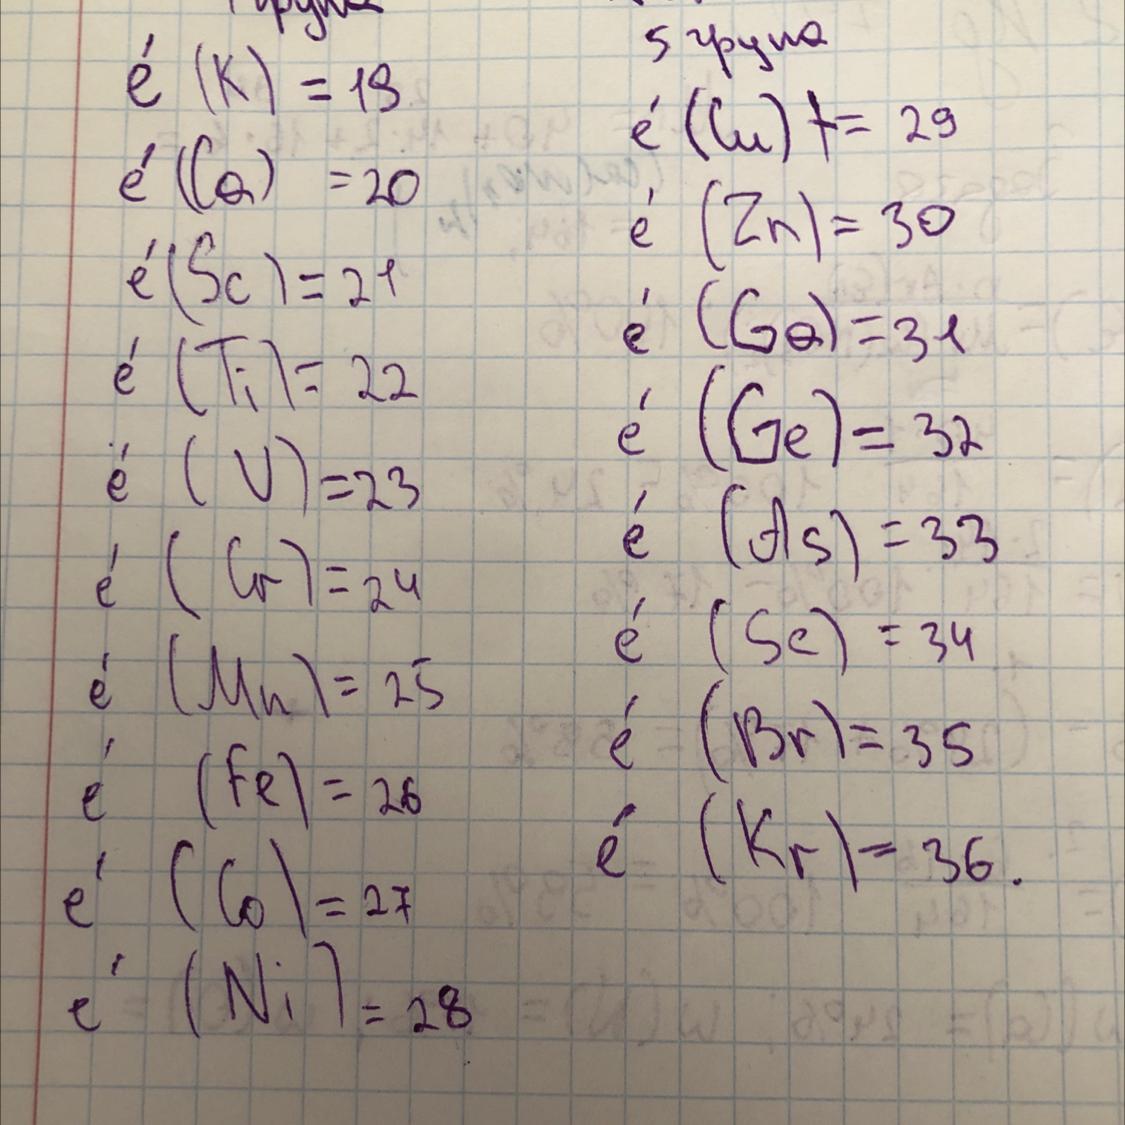 група
é (K) = 19
é (Ca) = 20
é (Sc) = 21
é (Ti) = 22
é (V) = 23
é (Cr) = 24
é (Mn) = 25
é (Fe) = 26
é (Co) = 27
é (Ni) = 28
5 група
é (Cu) = 29
é (Zn) = 30
é (Ga) = 31
é (Ge) = 32
é (As) = 33
é (Se) = 34
é (Br) = 35
é (Kr) = 36.